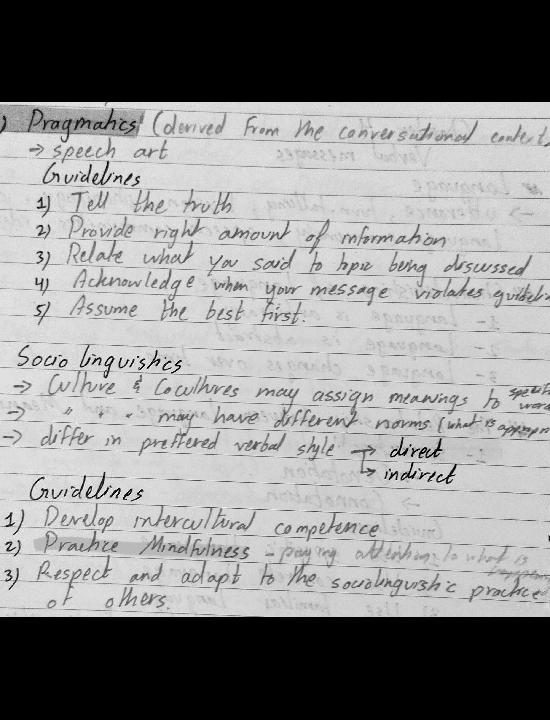 ) Pragmatics (derived from the conversational context,
→ speech art
Guidelines
1) Tell the truth
2) Provide right amount of information
3) Relate what you said to topic being discussed
4) Acknowledge when your message violates guideli
5) Assume the best first.
Socio linguistics
→ Culture & Cocultures may assign meanings to specif words
→ " " may have different norms (what is approp
→ differ in preffered verbal style → direct
↳ indirect
Guidelines
1) Develop intercultural competence
2) Practice Mindfulness - paying attention to what is
3) Respect and adapt to the sociolinguistic practice
of others.